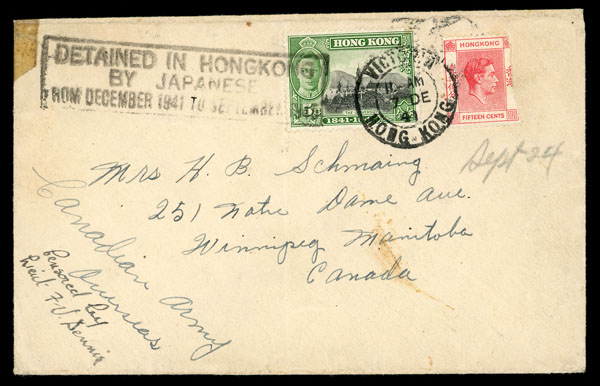 DETAINED IN HONGKO
BY JAPANESE
FROM DECEMBER 1941 TO SEPTEMBER
HONG KONG
5c
1841-1
VICTORIA
AM
DE
41
HONG KONG
HONGKONG
FIFTEEN CENTS
Sept 24
Mrs H. B. Schmaing
251 Notre Dame Ave.
Winnipeg Manitoba
Canada
Canadian Army
Overseas
Censored by
Lieut. F V Dennis